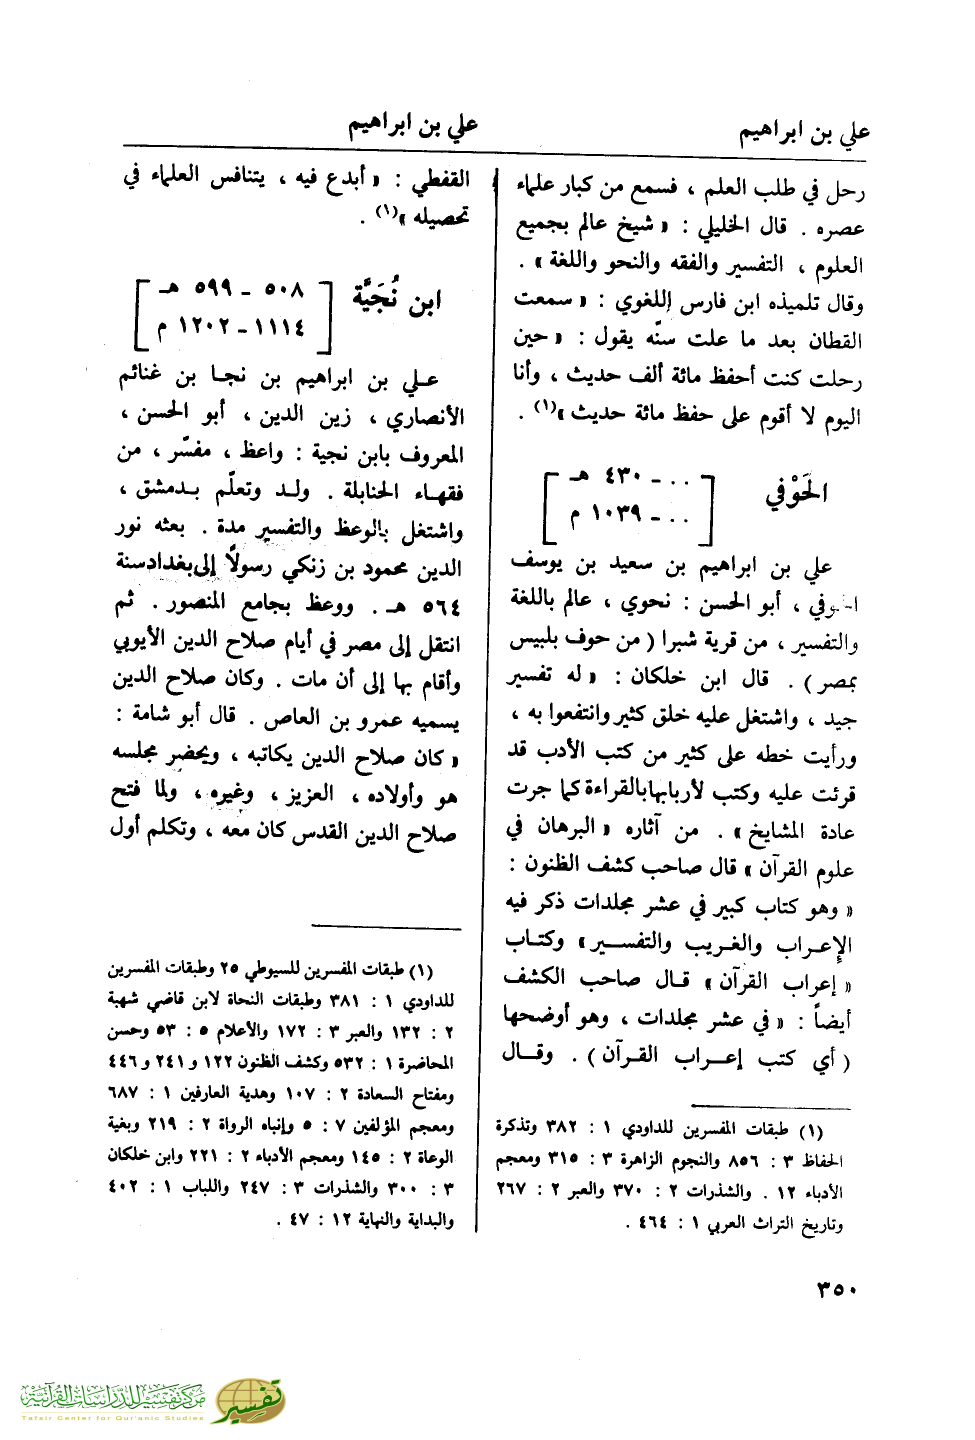 علي بن ابراهيم
علي بن ابراهيم
رحل في طلب العلم ، فسمع من كبار علماء
عصره . قال الخليلي : « شيخ عالم بجميع
العلوم ، التفسير والفقه والنحو واللغة » .
وقال تلميذه ابن فارس اللغوي : « سمعت
القطان بعد ما علت سنّه يقول : « حين
رحلت كنت أحفظ مائة ألف حديث ، وأنا
اليوم لا أقوم على حفظ مائة حديث »(١) .
الحَوْفي
[ . . ـ ٤٣٠ هـ
. . ـ ١٠٣٩ م ]
علي بن ابراهيم بن سعيد بن يوسف
الحوفي ، أبو الحسن : نحوي ، عالم باللغة
والتفسير ، من قرية شبرا ( من حوف بلبيس
بمصر ) . قال ابن خلكان : « له تفسير
جيد ، واشتغل عليه خلق كثير وانتفعوا به ،
ورأيت خطه على كثير من كتب الأدب قد
قرئت عليه وكتب لأربابها بالقراءة كما جرت
عادة المشايخ » . من آثاره « البرهان في
علوم القرآن » قال صاحب كشف الظنون :
« وهو كتاب كبير في عشر مجلدات ذكر فيه
الإعراب والغريب والتفسير » وكتاب
« إعراب القرآن » قال صاحب الكشف
أيضاً : « في عشر مجلدات ، وهو أوضحها
( أي كتب إعراب القرآن ) . وقال
(١) طبقات المفسرين للداودي ١ : ٣٨٢ وتذكرة
الحفاظ ٣ : ٨٥٦ والنجوم الزاهرة ٣ : ٣١٥ ومعجم
الأدباء ١٢ . والشذرات ٢ : ٣٧٠ والعبر ٢ : ٢٦٧
وتاريخ التراث العربي ١ : ٤٦٤ .
القفطي : « أبدع فيه ، يتنافس العلماء في
تحصيله »(١) .
ابن نُجَيَّة
[ ٥٠٨ ـ ٥٩٩ هـ
١١١٤ ـ ١٢٠٢ م ]
علي بن ابراهيم بن نجا بن غنائم
الأنصاري ، زين الدين ، أبو الحسن ،
المعروف بابن نجية : واعظ ، مفسّر ، من
فقهاء الحنابلة . ولد وتعلّم بدمشق ،
واشتغل بالوعظ والتفسير مدة . بعثه نور
الدين محمود بن زنكي رسولاً إلى بغداد سنة
٥٦٤ هـ . ووعظ بجامع المنصور . ثم
انتقل إلى مصر في أيام صلاح الدين الأيوبي
وأقام بها إلى أن مات . وكان صلاح الدين
يسميه عمرو بن العاص . قال أبو شامة :
« كان صلاح الدين يكاتبه ، ويحضر مجلسه
هو وأولاده ، العزيز ، وغيره ، ولما فتح
صلاح الدين القدس كان معه ، وتكلم أول
(١) طبقات المفسرين للسيوطي ٢٥ وطبقات المفسرين
للداودي ١ : ٣٨١ وطبقات النحاة لابن قاضي شهبة
٢ : ١٣٢ والعبر ٣ : ١٧٢ والأعلام ٥ : ٥٣ وحسن
المحاضرة ١ : ٥٣٢ وكشف الظنون ١٢٢ و ٢٤١ و ٤٤٦
ومفتاح السعادة ٢ : ١٠٧ وهدية العارفين ١ : ٦٨٧
ومعجم المؤلفين ٧ : ٥ وإنباه الرواة ٢ : ٢١٩ وبغية
الوعاة ٢ : ١٤٥ ومعجم الأدباء ٢ : ٢٢١ وابن خلكان
٣ : ٣٠٠ والشذرات ٣ : ٢٤٧ واللباب ١ : ٤٠٢
والبداية والنهاية ١٢ : ٤٧ .
٣٥٠
مركز تفسير للدراسات القرآنية
Tafsir Center for Qur'anic Studies
تفسير